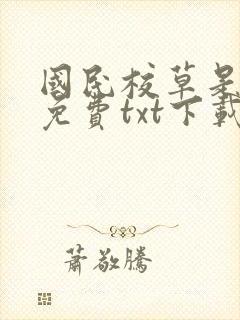 國民校草是
免費txt下載
蕭敬騰